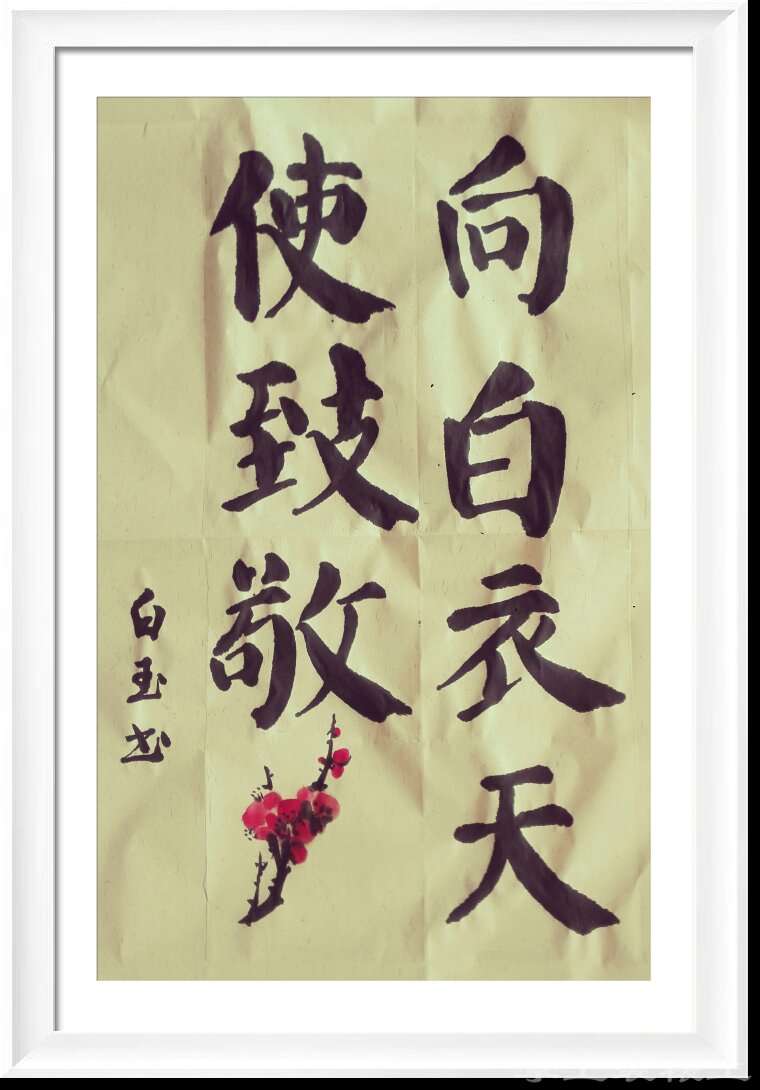 向白衣天
使致敬
白玉书